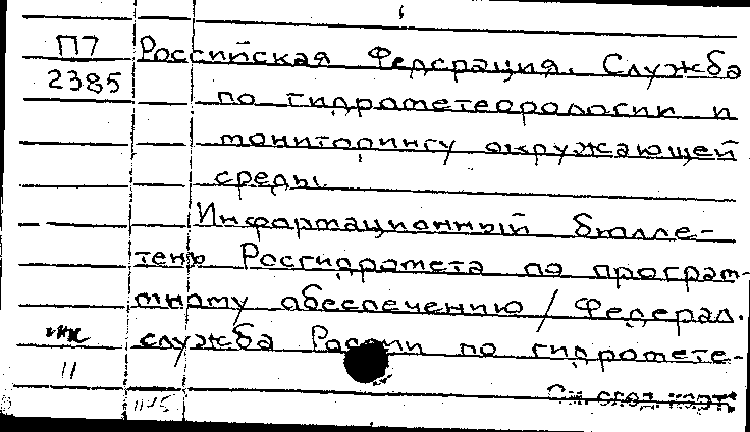 6
П7 Российская Федерация. Служба
2385 по гидрометеорологии и
мониторингу окружающей
среды.
Информационный бюлле-
тень Росгидромета по програм-
много обеспечению / Федерал.
служба России по гидромете-
11
См. след. карт.